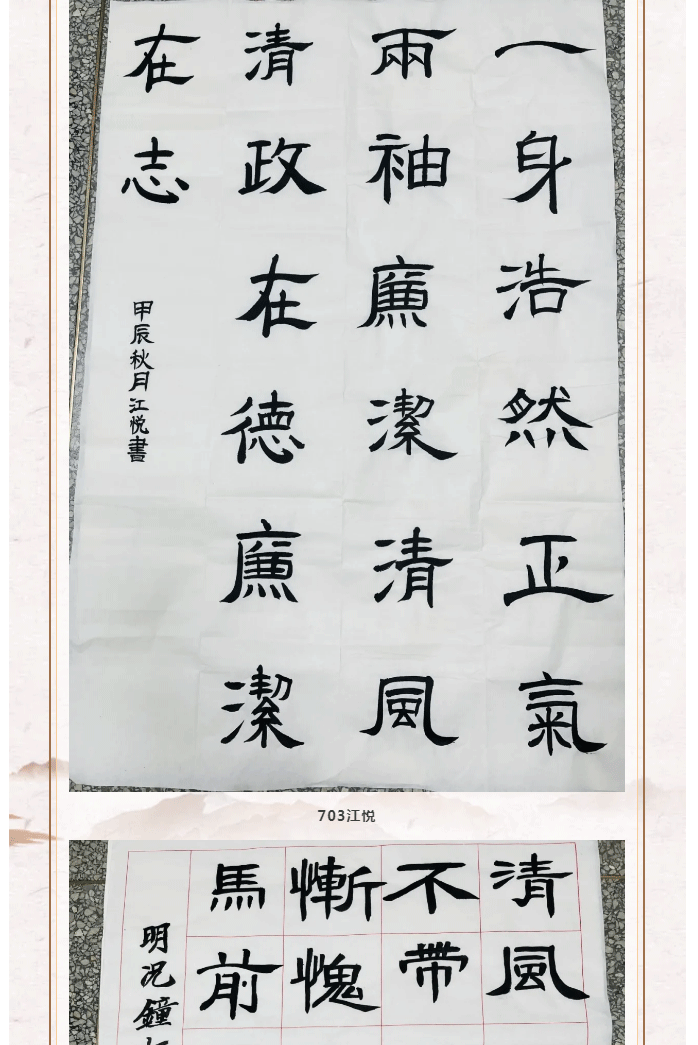 一身浩然正氣
兩袖廉潔清風
清政在德廉潔
在志
甲辰秋月江悦書
703江悦
清風
不帶
慚愧
馬前
明况鐘